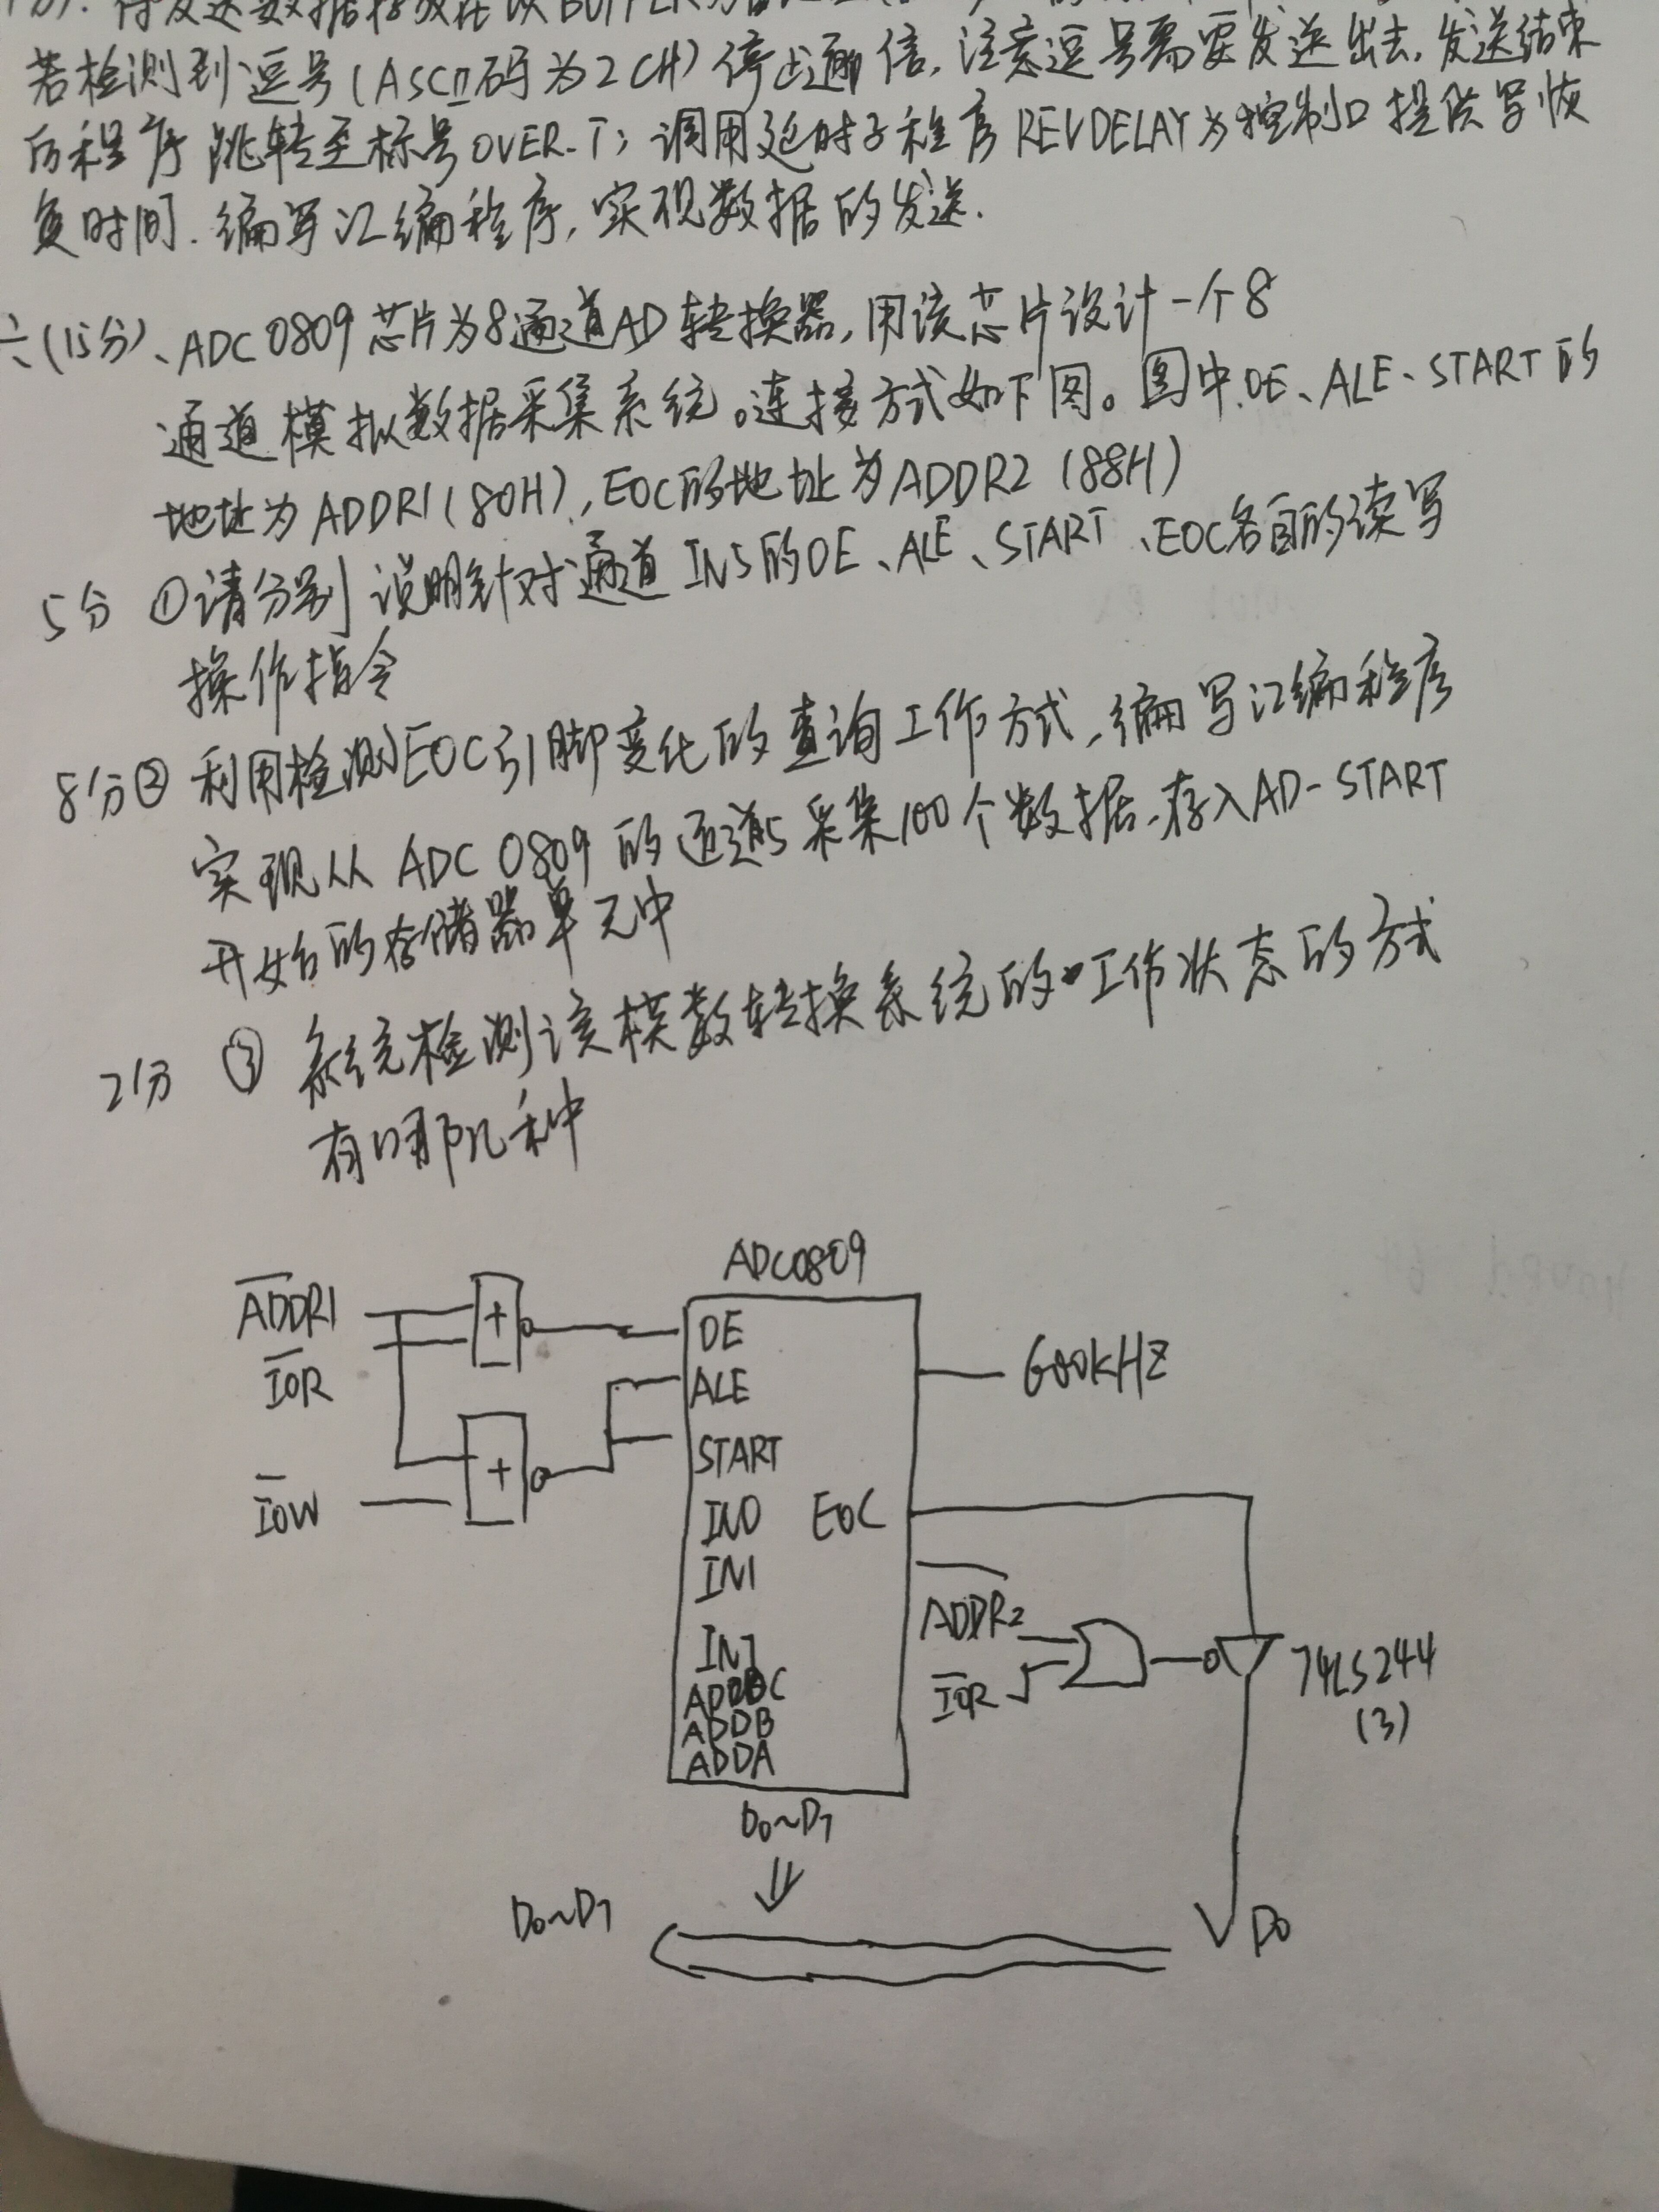 待发送数据存放在以BUFFER为
若检测到逗号(ASCII码为2CH)停止通信,注意逗号需要发送出去,发送结束
后程序跳转至标号OVER-T;调用延时子程序REVDELAY为控制口提供写恢
复时间.编写汇编程序,实现数据的发送.
六(15分)、ADC0809芯片为8通道AD转换器,用该芯片设计一个8
通道模拟数据采集系统。连接方式如下图。图中OE、ALE、START的
地址为ADDR1(80H),EOC的地址为ADDR2(88H)
5分 ①请分别说明针对通道IN5的OE、ALE、START、EOC各自的读写
操作指令
8分② 利用检测EOC引脚变化的查询工作方式,编写汇编程序
实现从ADC0809的通道5采集100个数据,存入AD-START
开始的存储器单元中
2分 ③ 系统检测该模数转换系统的工作状态的方式
有哪几种
ADC0809
ADDR1
+
OE
IOR
ALE
600KHZ
START
+
IOW
IN0
EOC
IN1
ADDR2
IN7
IOR
74LS244
(3)
ADDC
ADDB
ADDA
D0~D7
D0~D7
D0